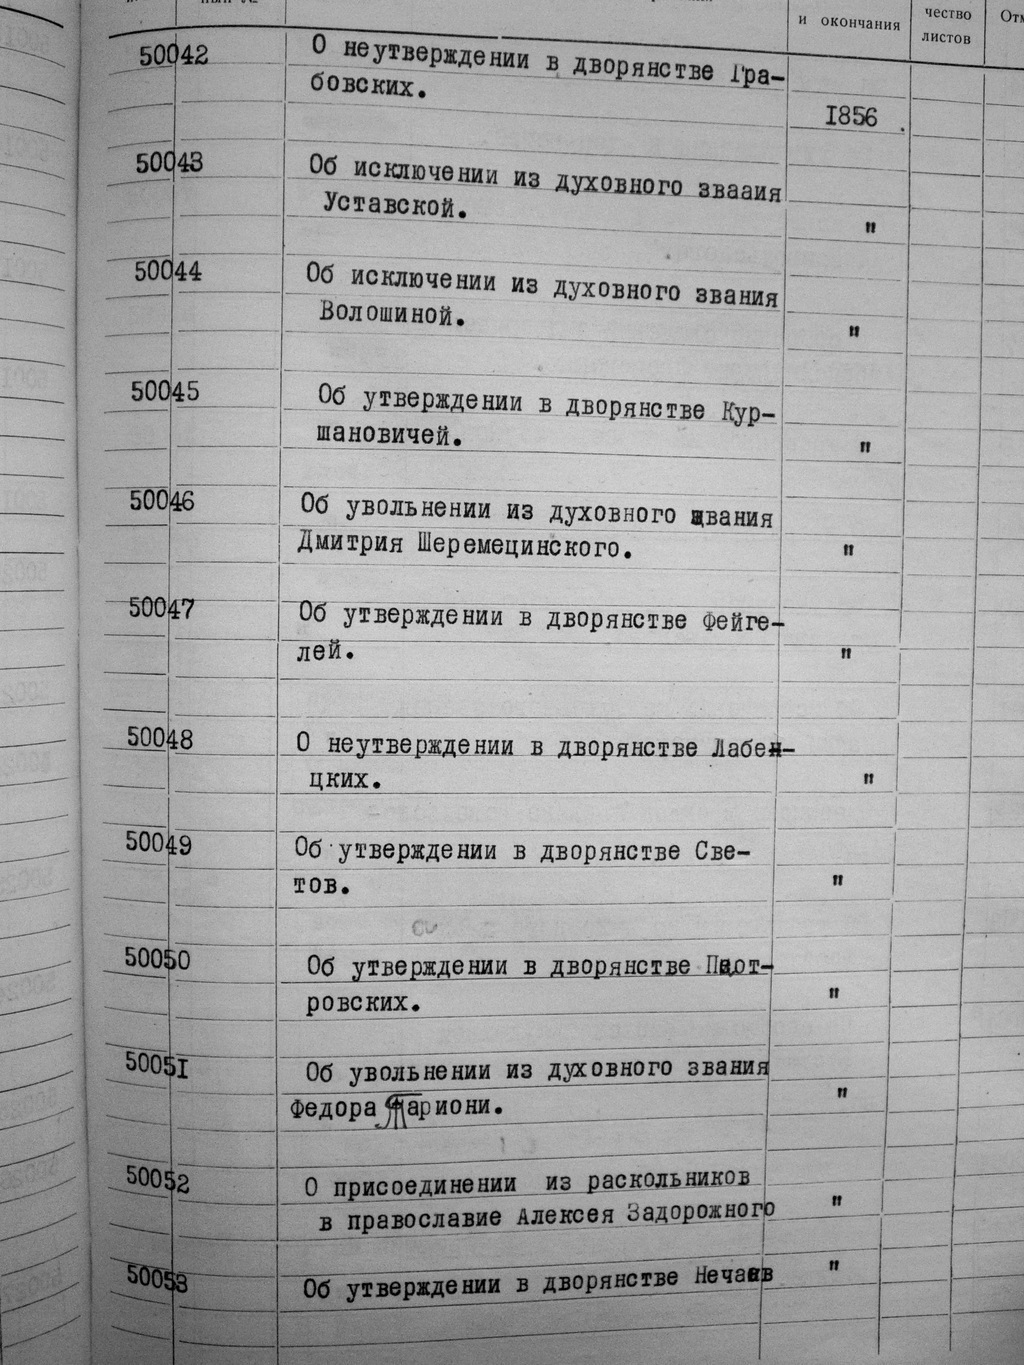 и окончания
чество
листов
50042
О неутверждении в дворянстве Гра-
бовских.
1856
50043
Об исключении из духовного зваaия
Уставской.
"
50044
Об исключении из духовного звания
Волошиной.
"
50045
Об утверждении в дворянстве Кур-
шановичей.
"
50046
Об увольнении из духовного звания
Дмитрия Шеремецинского.
"
50047
Об утверждении в дворянстве Фейге-
лей.
"
50048
О неутверждении в дворянстве Лабен-
цких.
"
50049
Об утверждении в дворянстве Све-
тов.
"
50050
Об утверждении в дворянстве
ровских.
"
50051
Об увольнении из духовного звания
Федора
"
50052
О присоединении из раскольников
в православие Алексея Задорожного
"
50053
Об утверждении в дворянстве
"